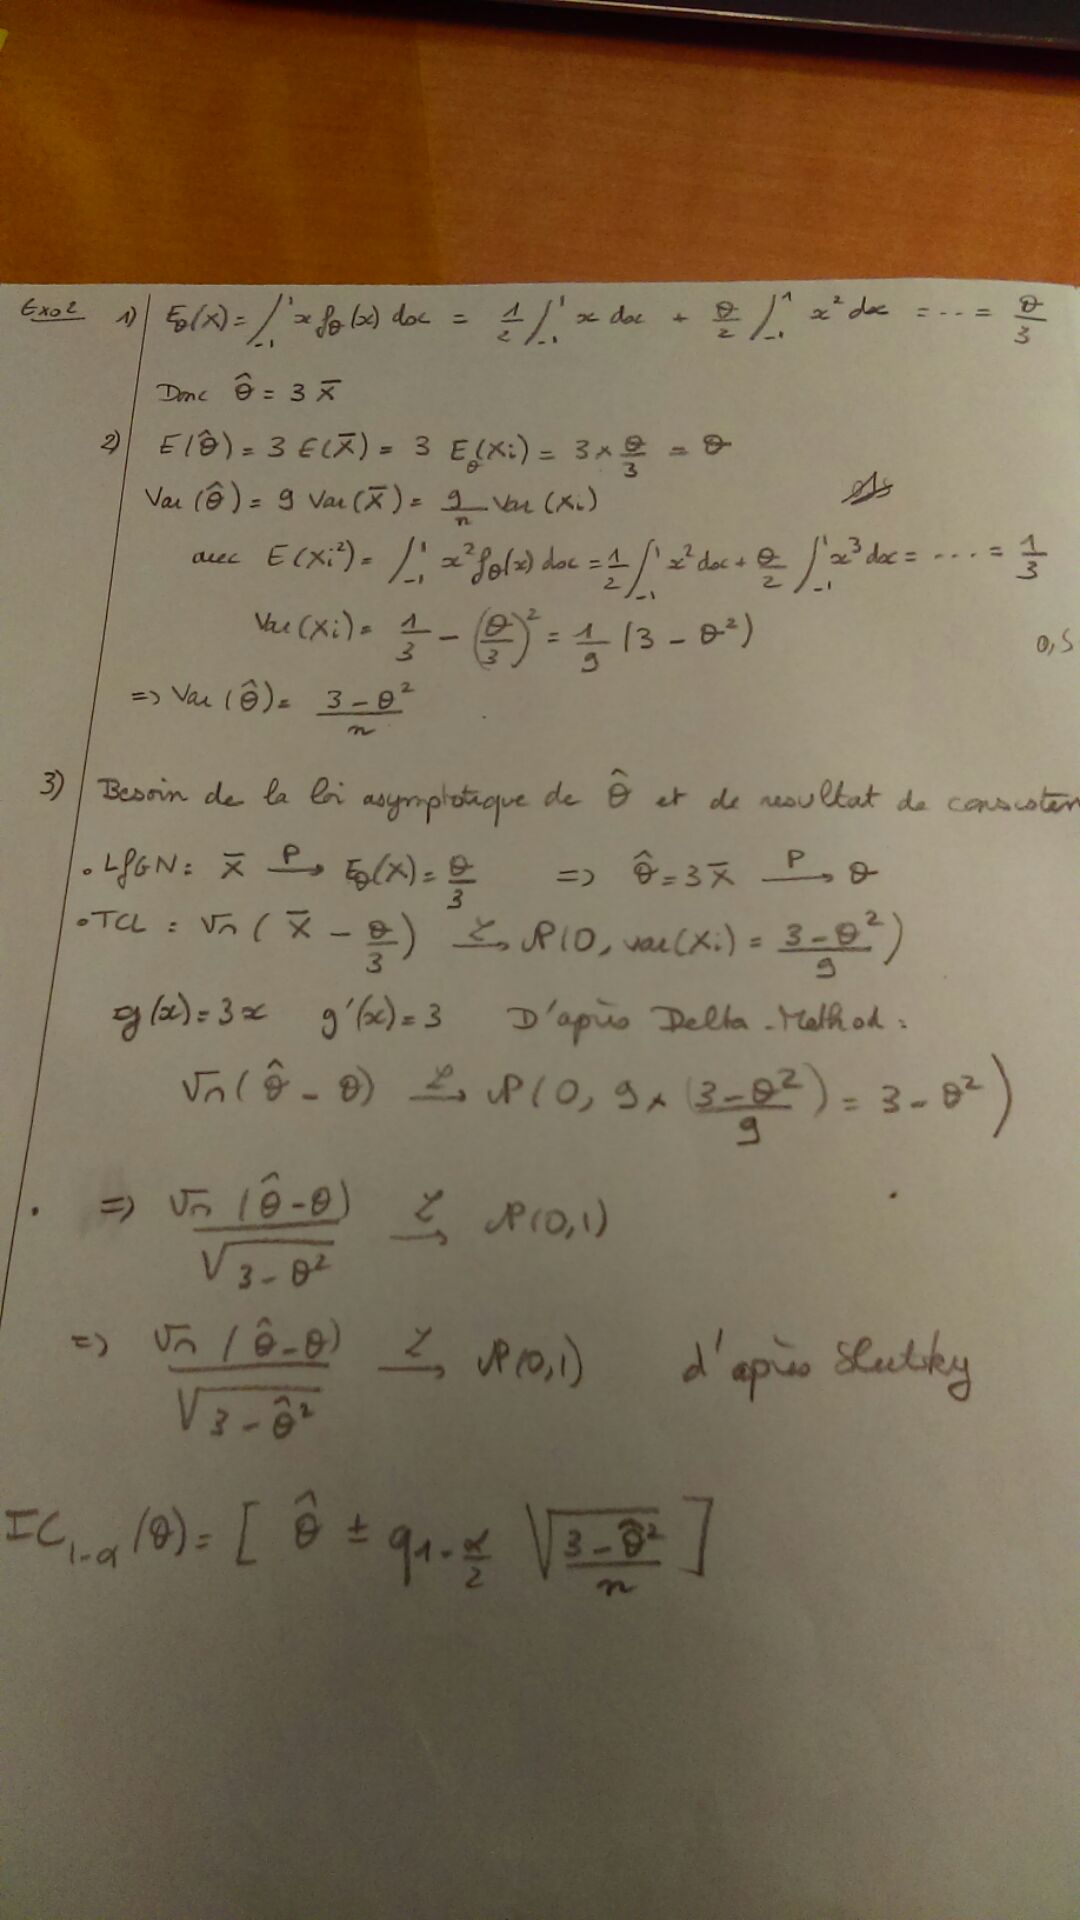 Exo 2 1) E_θ(X) = ∫_{-1}^{1} x f_θ(x) dx = 1/2 ∫_{-1}^{1} x dx + θ/2 ∫_{-1}^{1} x² dx = ... = θ/3
Donc θ̂ = 3 X̄
2) E(θ̂) = 3 E(X̄) = 3 E_θ(Xi) = 3 × θ/3 = θ
Var(θ̂) = 9 Var(X̄) = 9/n Var(Xi)
avec E(Xi²) = ∫_{-1}^{1} x² f_θ(x) dx = 1/2 ∫_{-1}^{1} x² dx + θ/2 ∫_{-1}^{1} x³ dx = ... = 1/3
Var(Xi) = 1/3 - (θ/3)² = 1/9 (3 - θ²) 0,5
=> Var(θ̂) = (3 - θ²)/n
3) Besoin de la loi asymptotique de θ̂ et de resultat de consisten
• LfGN : X̄ →^P E_θ(X) = θ/3 => θ̂ = 3 X̄ →^P θ
• TCL : √n ( X̄ - θ/3 ) →^L N(0, var(Xi) = (3 - θ²)/9 )
g(x) = 3x g'(x) = 3 D'après Delta-Method :
√n (θ̂ - θ) →^L N(0, 9 × ((3 - θ²)/9) = 3 - θ² )
. => √n (θ̂ - θ) / √(3 - θ²) →^L N(0,1)
=> √n (θ̂ - θ) / √(3 - θ̂²) →^L N(0,1) d'après Slutsky
IC_{1-α}(θ) = [ θ̂ ± q_{1-α/2} √((3 - θ̂²)/n) ]